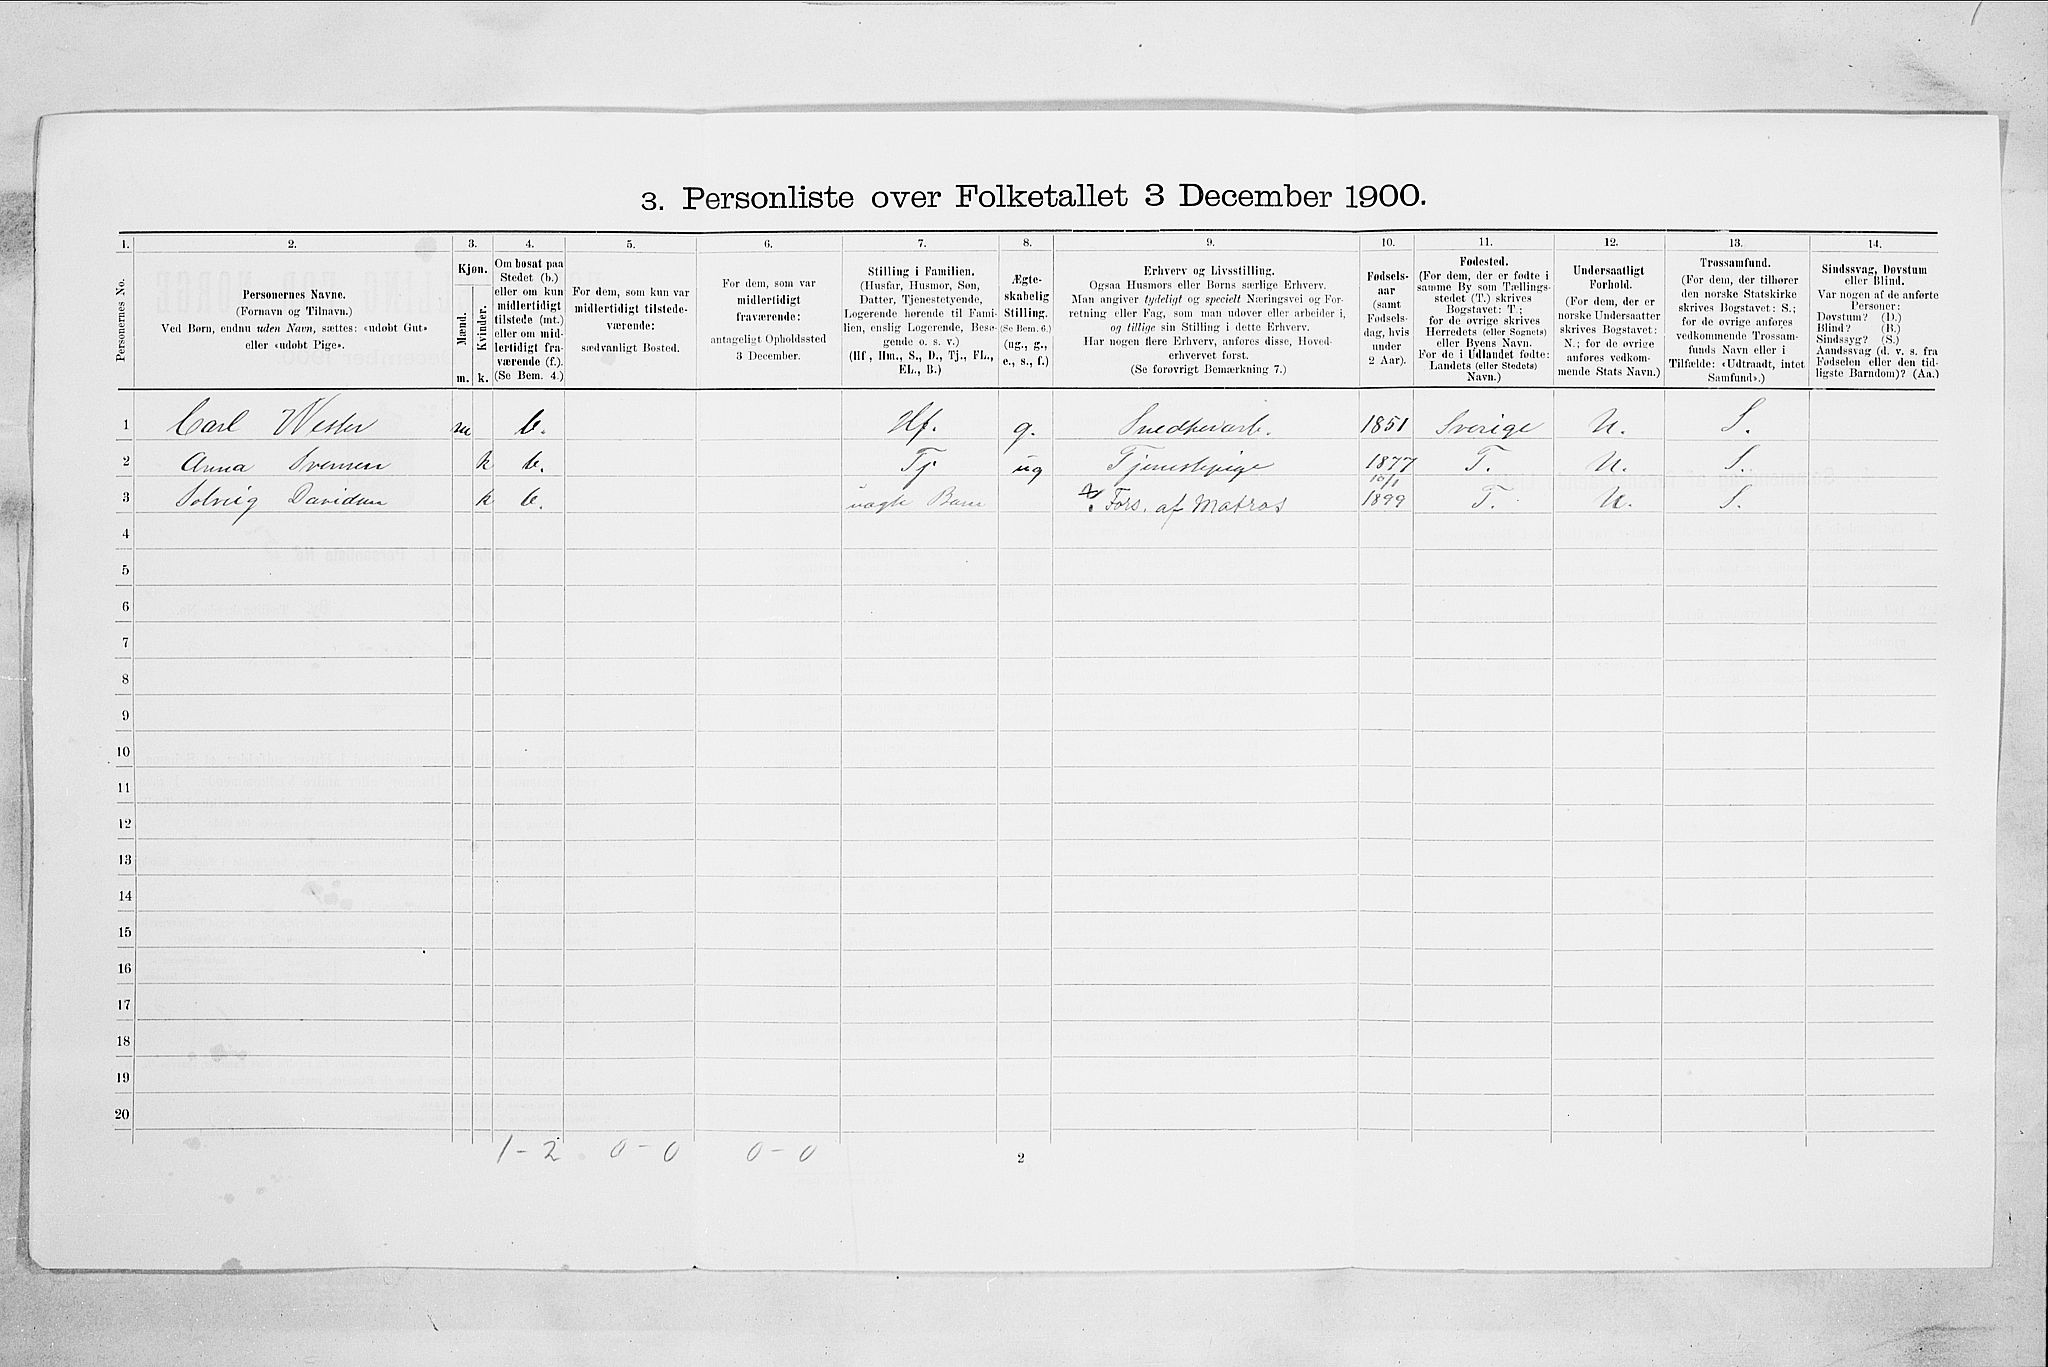 3. Personliste over Folketallet 3 December 1900.
1. 2. 3. 4. 5. 6. 7. 8. 9. 10. 11. 12. 13. 14.
Personernes No.
Personernes Navne.
(Fornavn og Tilnavn.)
Ved Børn, endnu uden Navn, sættes: «udøbt Gut»
eller «udøbt Pige».
Kjøn.
Mænd.
Kvinder.
m. k.
Om bosat paa
Stedet (b.)
eller om kun
midlertidigt
tilstede (mt.)
eller om mid-
lertidigt fra-
værende (f.).
(Se Bem. 4.)
For dem, som kun var
midlertidigt tilstede-
værende:
sædvanligt Bosted.
For dem, som var
midlertidigt
fraværende:
antageligt Opholdssted
3 December.
Stilling i Familien.
(Husfar, Husmor, Søn,
Datter, Tjenestetyende,
Logerende hørende til Fami-
lien, enslig Logerende, Besø-
gende o. s. v.)
(Hf., Hm., S., D., Tj., FL.,
EL., B.)
Ægte-
skabelig
Stilling.
(Se Bem. 6.)
(ug., g.,
e., s., f.)
Erhverv og Livsstilling.
Ogsaa Husmors eller Børns særlige Erhverv.
Man angiver tydeligt og specielt Næringsvei og For-
retning eller Fag, som man udøver eller arbeider i,
og tillige sin Stilling i dette Erhverv.
Har nogen flere Erhverv, anføres disse, Hoved-
erhvervet først.
(Se forøvrigt Bemærkning 7.)
Fødsels-
aar
(samt
Fødsels-
dag, hvis
under
2 Aar).
Fødested.
(For dem, der er fødte i
samme By som Tællings-
stedet (T.) skrives
Bogstavet: T.;
for de øvrige skrives
Herredets (eller Sognets)
eller Byens Navn.
For de i Udlandet fødte:
Landets (eller Stedets)
Navn.)
Undersaatligt
Forhold.
(For dem, der er
norske Undersaatter
skrives Bogstavet:
N.; for de øvrige
anføres vedkom-
mende Stats Navn.)
Trossamfund.
(For dem, der tilhører
den norske Statskirke
skrives Bogstavet: S.;
for de øvrige anføres
vedkommende Trossam-
funds Navn eller i
Tilfælde: «Udtraadt, intet
Samfund».)
Sindssvag, Døvstum
eller Blind.
Var nogen af de anførte
Personer:
Døvstum? (D.)
Blind? (B.)
Sindssyg? (S.)
Aandssvag (d. v. s. fra
Fødselen eller den tid-
ligste Barndom)? (Aa.)
1 Carl Wester m b. Hf. g. Snedkerarb. 1851 Sverige N. S.
2 Anna Svensen k b. Tj ug Tjenestepige 1877 T. N. S.
3 Solveig Davidsen k b. Barn Fors. af Matros 1899 T. N. S.
4
5
6
7
8
9
10
11
12
13
14
15
16
17
18
19
20
1 - 2 0 - 0 0 - 0
2